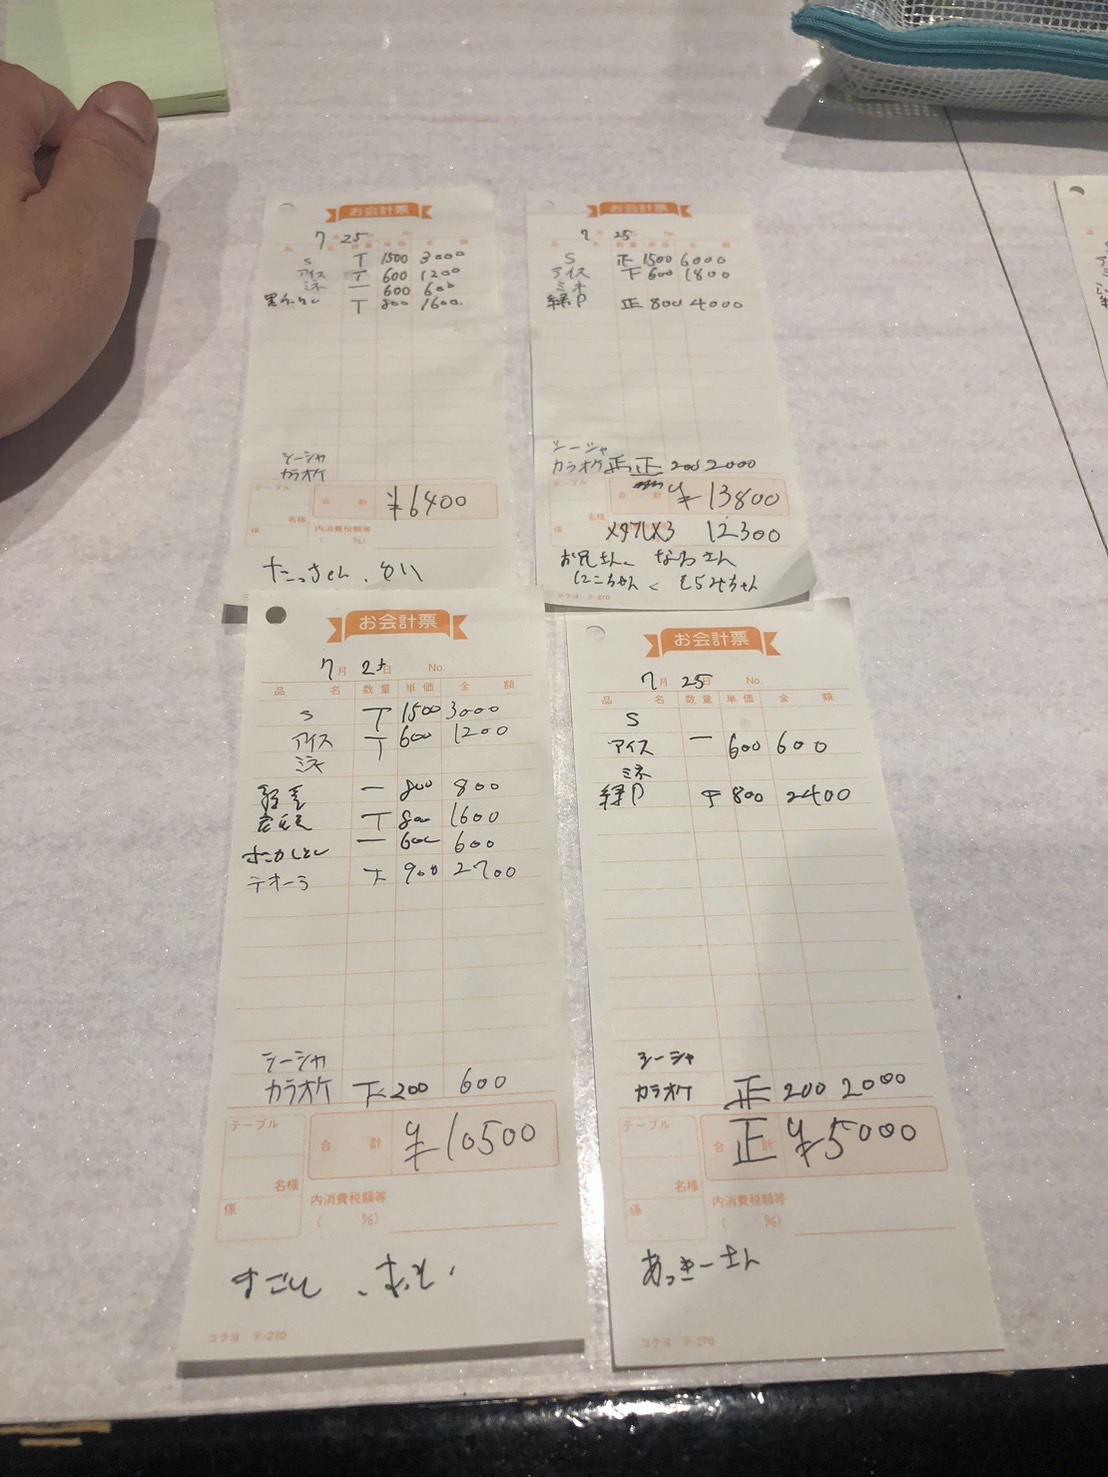 お会計票
7 25
S T 1500 3000
アイス T 600 1200
ミネ 一 600 600
T 800 1600
シーシャ
カラオケ
テーブル
合 計 ¥6400
名様
係 内消費税額等
( %)
お会計票
7 25
S 正 1500 6000
アイス 下 600 1800
ミネ
緑P 正 800 4000
シーシャ
カラオケ 正 正 200 2000
テーブル
合 計 ¥13800
名様
係 12300
お兄さん、なるさん
にこちゃん、
コクヨ テ-270
お会計票
7月 25日 No.
品 名 数量 単価 金 額
S T 1500 3000
アイス T 600 1200
ミネ
一 800 800
T 800 1600
一 600 600
テオーラ 下 900 2700
シーシャ
カラオケ 下 200 600
テーブル
合 計 ¥10500
名様
係 内消費税額等
( %)
コクヨ テ-270
お会計票
7月 25日 No.
品 名 数量 単価 金 額
S
アイス 一 600 600
ミネ
緑P 下 800 2400
シーシャ
カラオケ 正 200 2000
テーブル
合 計 正 ¥5000
名様
係 内消費税額等
( %)
あっきーさん
コクヨ テ-270